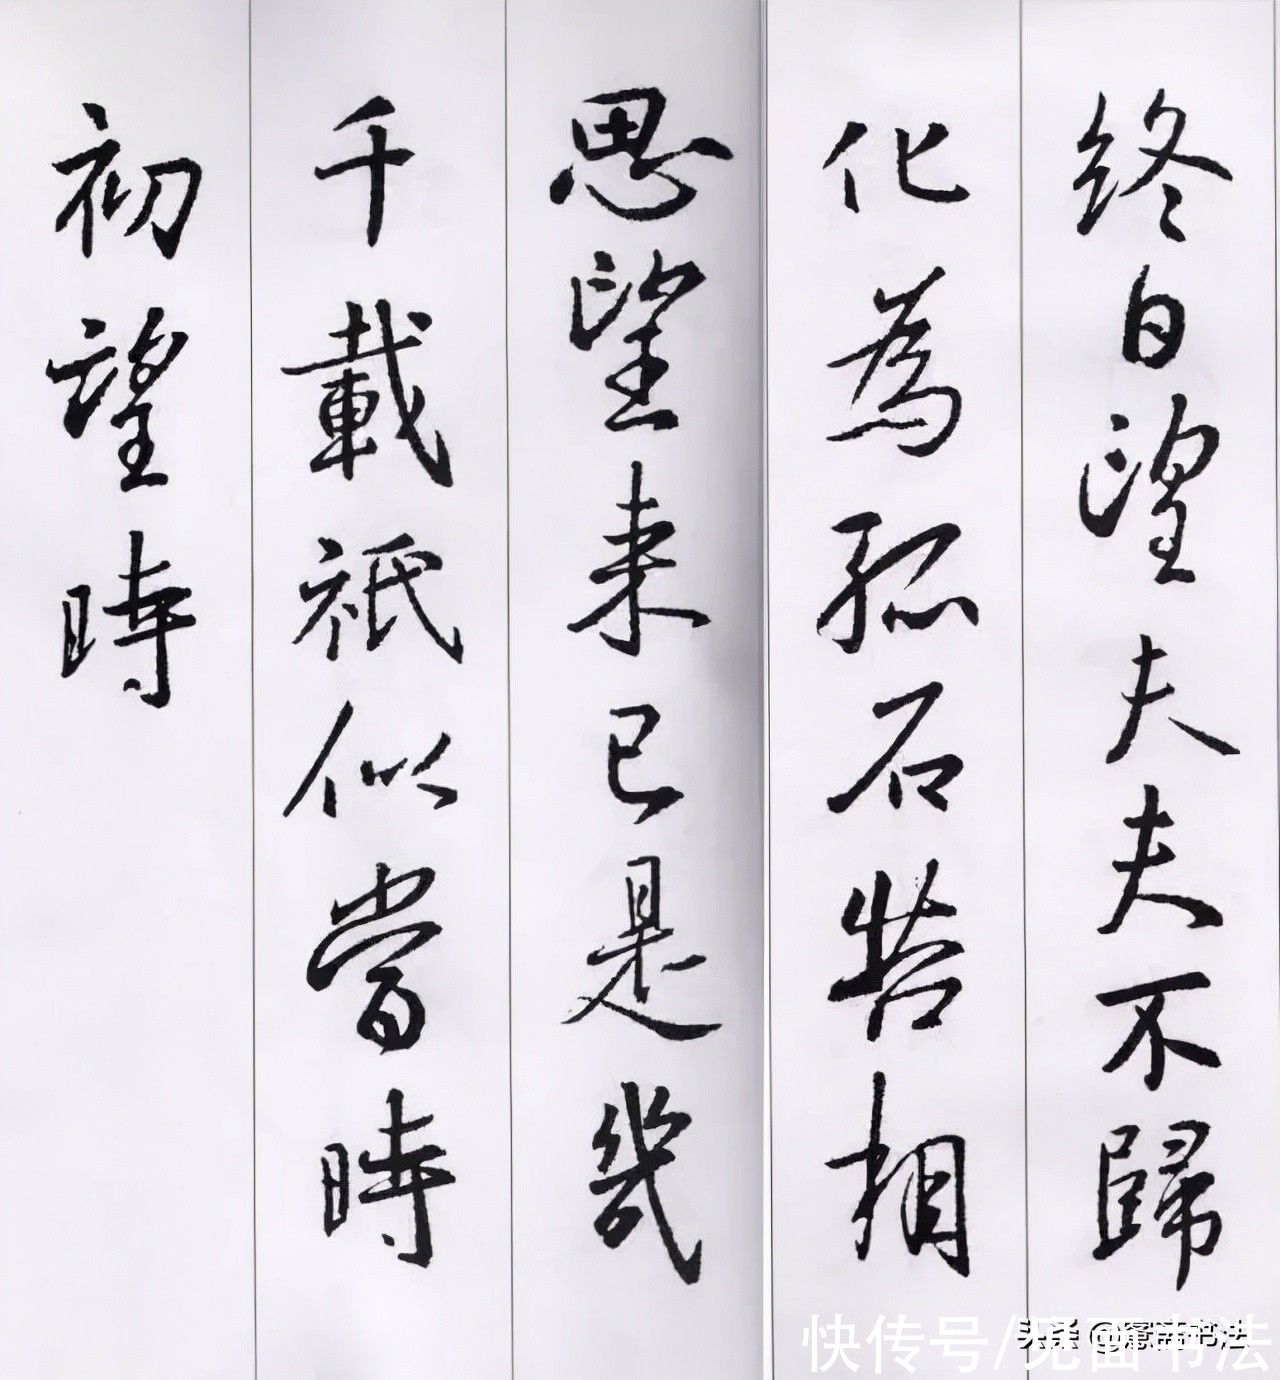 終日望夫夫不歸
化為孤石苦相
思望来已是幾
千載祇似當時
初望時
快传号/
头条 @
书法